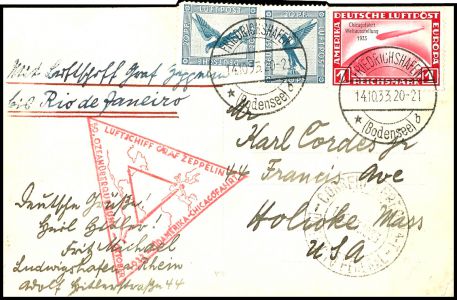 20 PF.
20 PF.
DEUTSCHE LUFTPOST
AMERIKA
EUROPA
Chicagofahrt
Weltausstellung
1933
1 REICHSMARK 1
FRIEDRICHSHAFEN
14.10.33.20-21
(Bodensee) b
FRIEDRICHSHAFEN
14.10.33.20-21
(Bodensee) b
Mit Luftschiff Graf Zeppelin
bis Rio de Janeiro
Mr
Karl Cordes Jr
44 Francis Ave
Holioke Mass
USA
LUFTSCHIFF GRAF ZEPPELIN
50. OZEANÜBERQUERUNG
SÜDAMERIKA-CHICAGOFAHRT
Deutsche Grüße!
Heil Hitler!
Fritz Machael
Ludwigshafen Rhein
Adolf Hitlerstraße 44